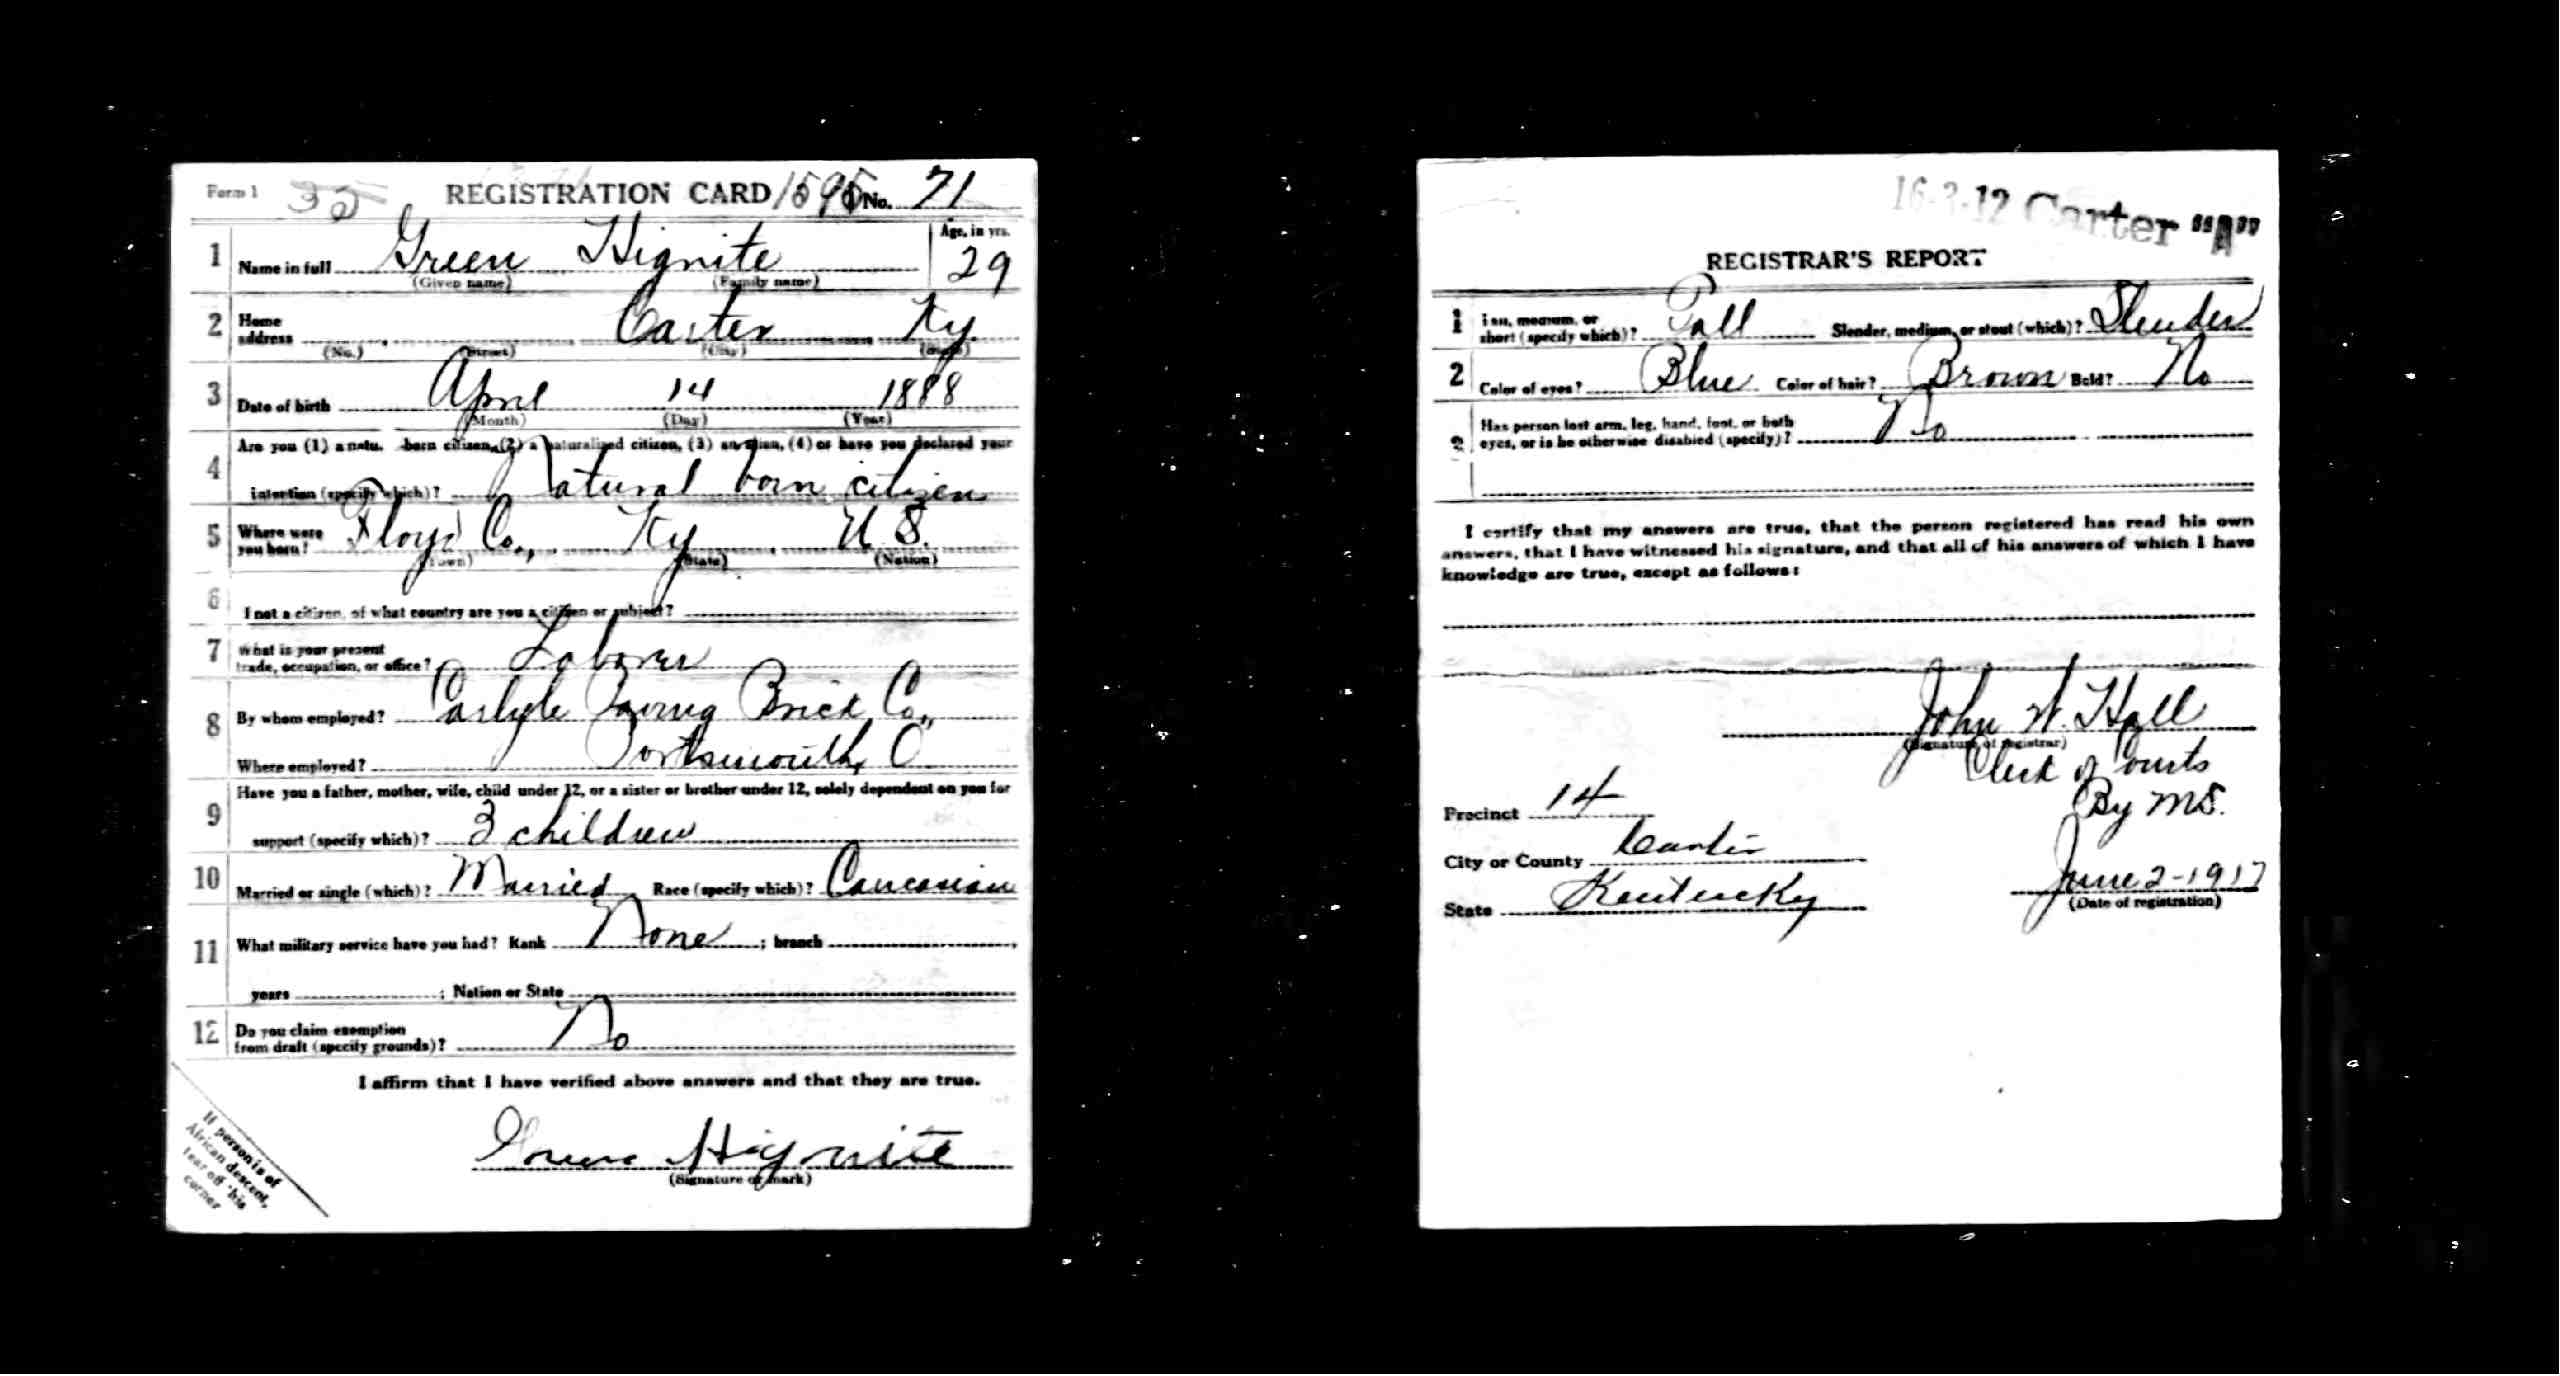 Form 1 35 REGISTRATION CARD 1595 No. 71
1 Name in full Green Hignite Age, in yrs. 29
(Given name) (Family name)
2 Home address Carter Ky.
(No.) (Street) (City) (State)
3 Date of birth April 14 1888
(Month) (Day) (Year)
4 Are you (1) a natu born citizen, (2) a naturalized citizen, (3) an alien, (4) or have you declared your
intention (specify which)? Natural born citizen
5 Where were you born? Floyd Co., Ky U.S.
(Town) (State) (Nation)
6 I not a citizen, of what country are you a citizen or subject?
7 What is your present trade, occupation, or office? Laborer
8 By whom employed? Carlyle Paving Brick Co.,
Where employed? Portsmouth, O
9 Have you a father, mother, wife, child under 12, or a sister or brother under 12, solely dependent on you for
support (specify which)? 3 children
10 Married or single (which)? Married Race (specify which)? Caucasian
11 What military service have you had? Rank None ; branch
years ; Nation or State
12 Do you claim exemption from draft (specify grounds)? No
I affirm that I have verified above answers and that they are true.
Hignite
(Signature or mark)
If person is of
African descent,
tear off this
corner
16-3-12 Carter "A"
REGISTRAR'S REPORT
1 Tall, medium, or short (specify which)? Tall Slender, medium, or stout (which)? Slender
2 Color of eyes? Blue Color of hair? Brown Bald? No
3 Has person lost arm, leg, hand, foot, or both
eyes, or is he otherwise disabled (specify)? No
I certify that my answers are true, that the person registered has read his own
answers, that I have witnessed his signature, and that all of his answers of which I have
knowledge are true, except as follows:
John W. Hall
(Signature of registrar)
Clerk of Courts
By MS.
Precinct 14
City or County Carter
State Kentucky
June 2-1917
(Date of registration)